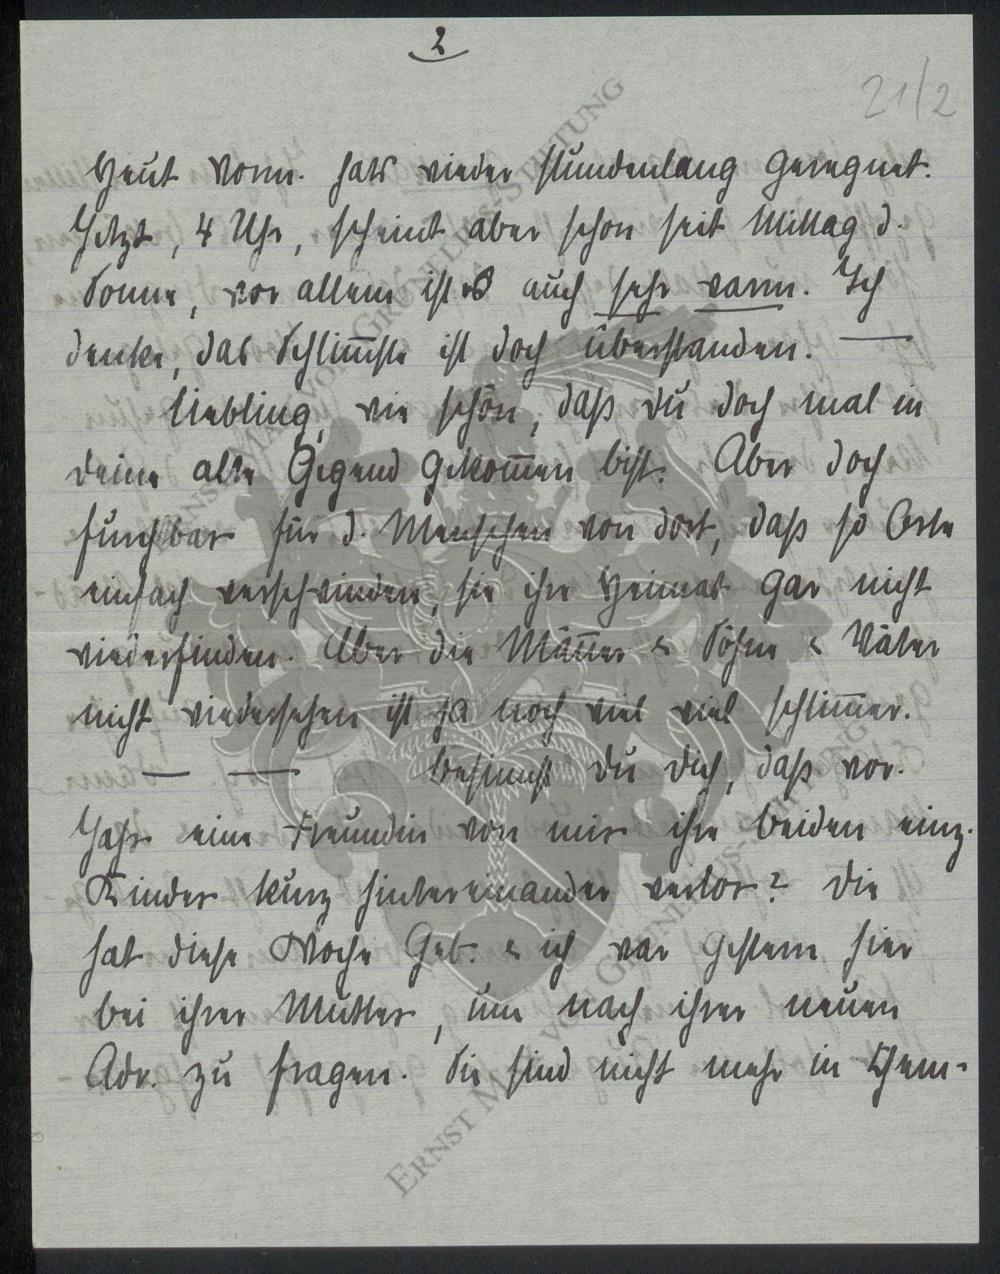 2
21/2
Heut vorm. hats wieder stundenlang geregnet.
Jetzt, 4 Uhr, scheint aber schon seit Mittag d.
Sonne, vor allem ist es auch sehr warm. Ich
denke, das Schlim̅ste ist doch überstanden. —
Liebling, wie schön, daß Du doch mal in
Deine alte Gegend gekom̅en bist. Aber doch
furchbar für d. Menschen von dort, daß so Orte
einfach verschwinden, sie ihre Heimat gar nicht
wiederfinden. Aber die Män̅er & Söhne & Väter
nicht wiedersehen ist ja noch viel viel schlim̅er.
— — Besinnst Du Dich, daß vor.
Jahr eine Freundin von mir ihre beiden einz.
Kinder kurz hintereinander verlor? Die
hat diese Woche Geb. & ich war gestern hier
bei ihrer Mutter, um nach ihrer neuen
Adr. zu fragen. Sie sind nicht mehr in Chem-
ERNST MARTIN VON GRÜNELIUS-STIFTUNG
ERNST M VON GRÜNELIUS-STIFTUNG